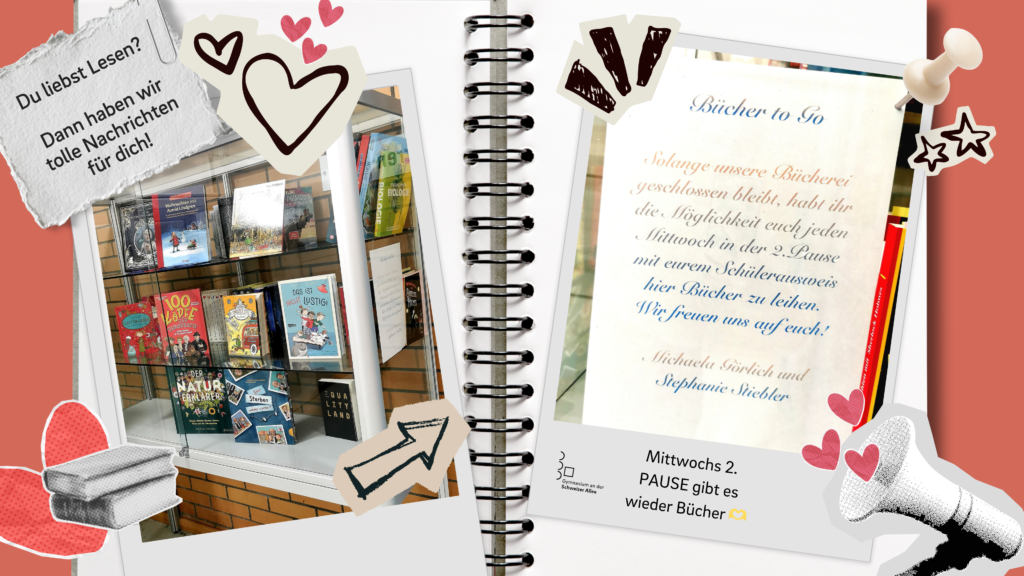 Du liebst Lesen?
Dann haben wir
tolle Nachrichten
für dich!
BIOLOGIE
Weihnachten mit
Astrid Lindgren
100
KÖPFE
DAS IST
NICHT LUSTIG!
DER
NATUR
ERKLÄRER
Sterben
EQUA
LITY
LAND
Bücher to Go
Solange unsere Bücherei
geschlossen bleibt, habt ihr
die Möglichkeit euch jeden
Mittwoch in der 2.Pause
mit eurem Schülerausweis
hier Bücher zu leihen.
Wir freuen uns auf euch!
Michaela Görlich und
Stephanie Stiebler
Gymnasium an der
Schweizer Allee
Mittwochs 2.
PAUSE gibt es
wieder Bücher 🫶